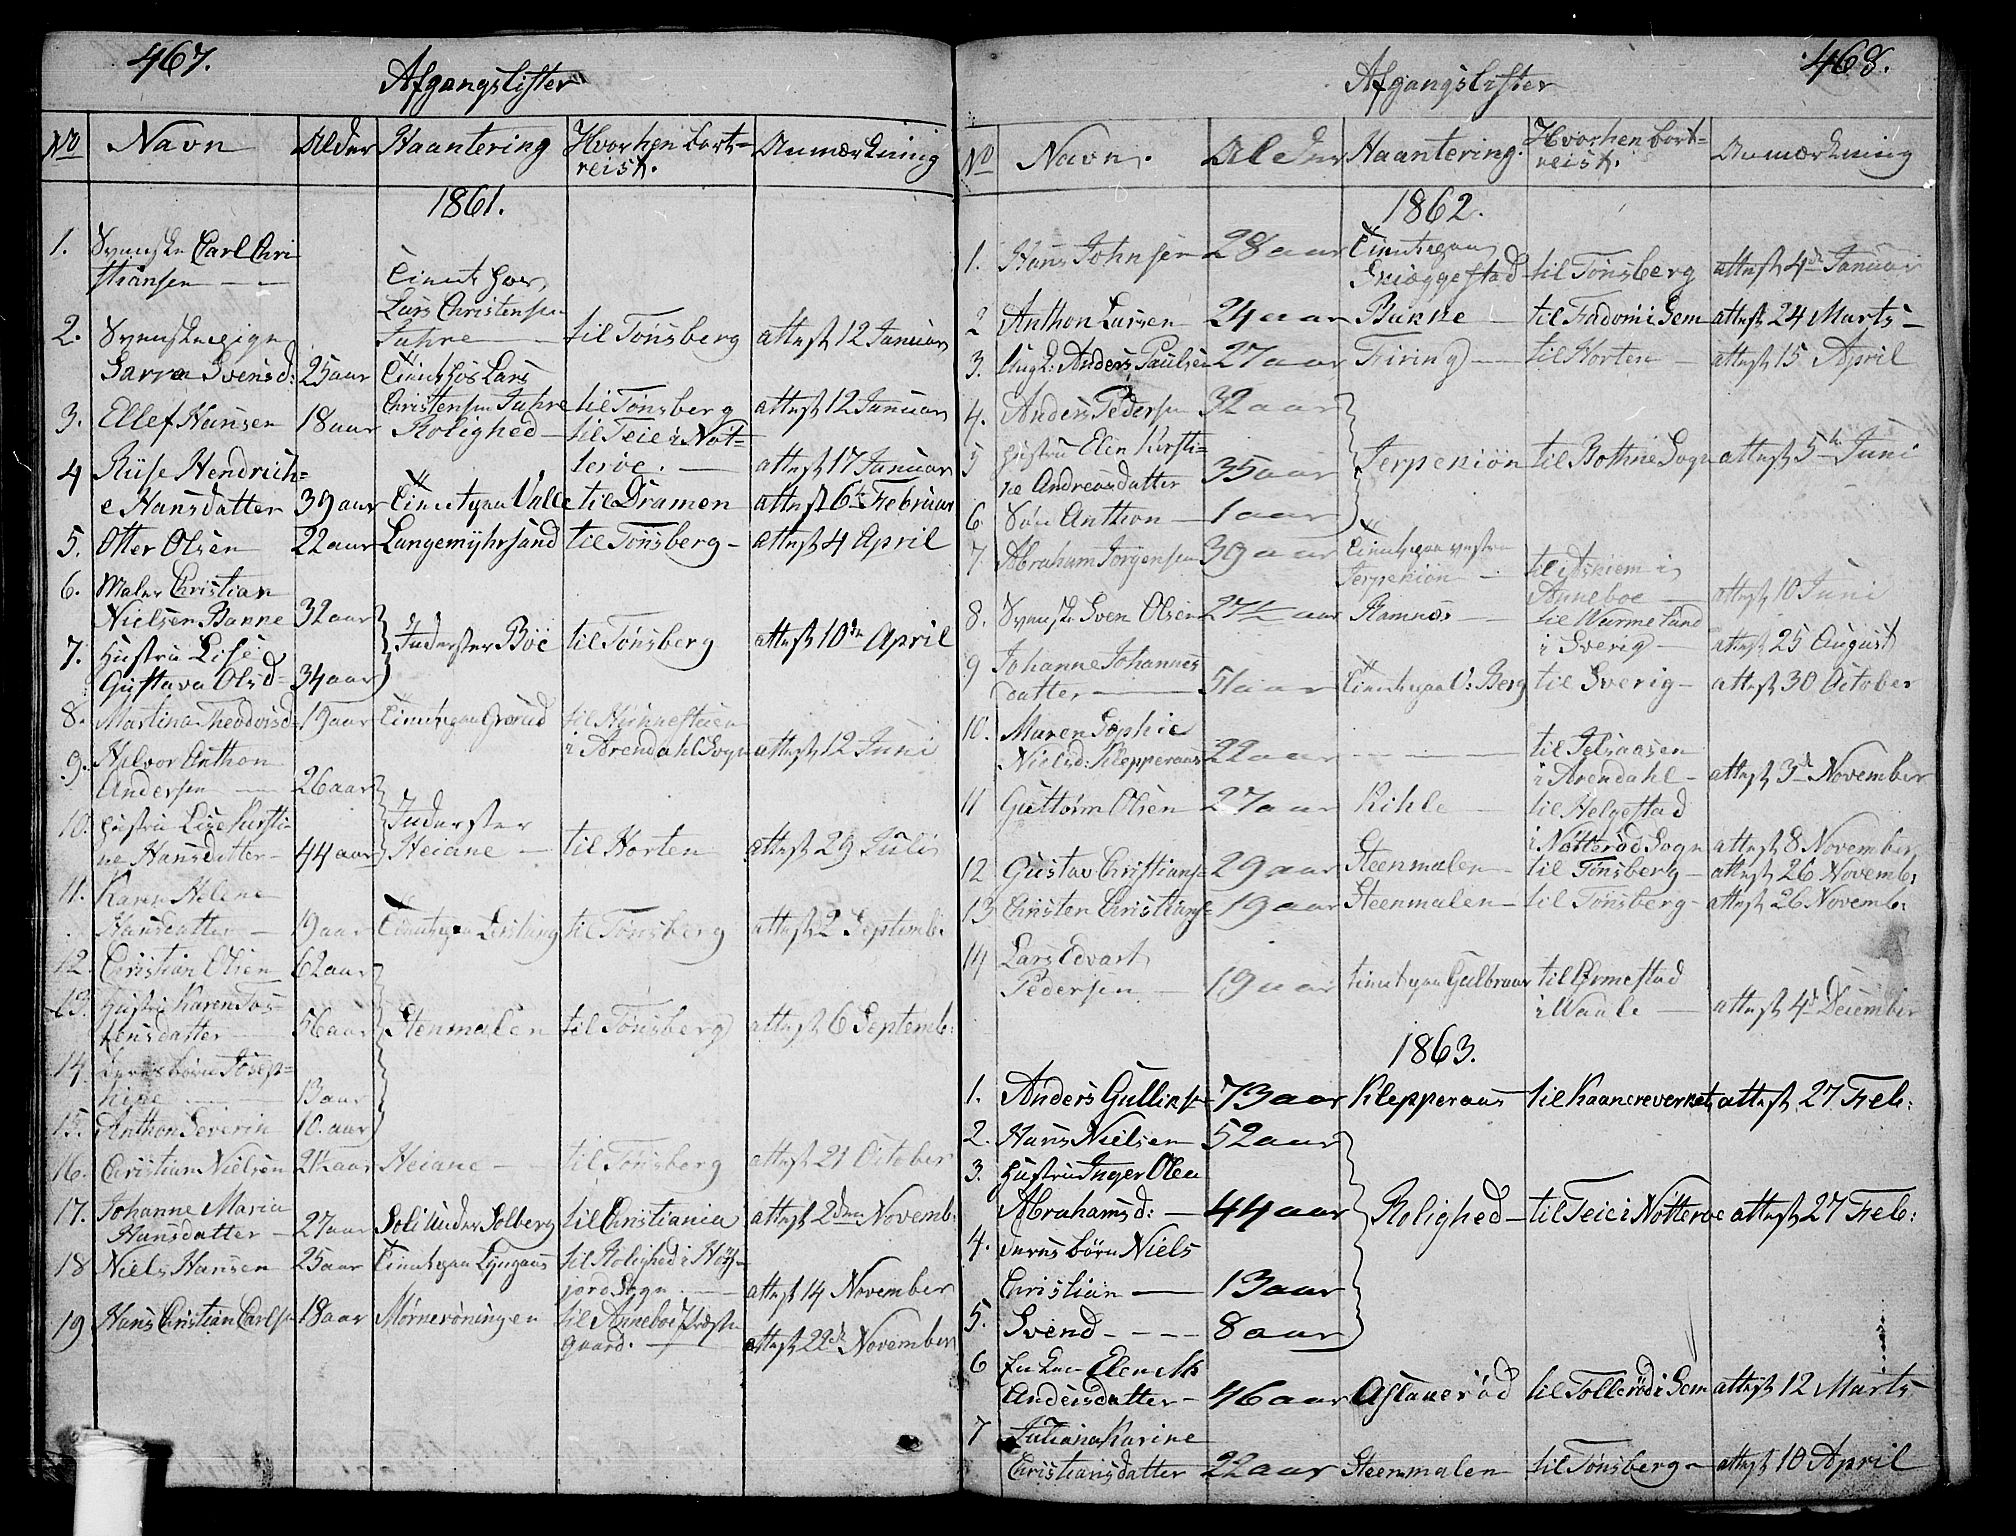 467.
Afgangslister
No Navn Alder Haantering Hvorhen bort-
reist. Anmærkning
1861.
1. Svenske Carl Chri
stiansen - - Tient hos
Lars Christensen
Jahre til Tønsberg attest 12 Januar
2. Svenskepige
Sarra Svensd: 25 aar Tient hos Lars
Christensen Jahre til Tønsberg attest 12 Januar
3. Ellef Hansen 18 aar Rolighed til Teie i Nøt-
terøe. attest 17 Januar
4 Hendrich-
e Hansdatter 39 aar Tient paa Valle til Dramen attest 6te Februar
5. Otter Olsen 22 aar Langemyhrsand til Tønsberg attest 4 April
6. Maler Christian
Nielsen Banne 32 aar
7. Hustru Lise
Gustava Olsd 34 aar Inderster Bøe til Tønsberg attest 10de April
8. Martina Theodorsd 19 aar Tient paa Grorud til
i Arendahl Sogn attest 12 Juni
9. Halvor Anthon
Andersen 26 aar
10. Hustru Lise Kirsti
ne Hansdatter 44 aar Inderster
Heiane til Horten attest 29 Juli
11. Karen Helene
Hansdatter 19 aar Tient paa til Tønsberg attest 2 Septemb:
12. Christian Olsen 62 aar
13. Hustru Karen Tos-
tensdatter 56 aar Stenmalen til Tønsberg attest 6 Septemb:
14. Deres børn Josep-
hine 13 aar
15. Anthon Severin 10. aar
16. Christian Nielsen 24½ aar Heiane til Tønsberg attest 21 October
17. Johanne Maria
Hansdatter 27 aar Soli under Solberg til Christiania attest 2den Novemb:
18 Niels Hansen 25 aar Tient paa Lyngaas til Rolighed i Høy-
jord Sogn attest 14 November
19 Hans Christian Carlsen 18 aar Mørnerøningen til Anneboe Præste
gaard. attest 22de November
468.
Afgangslister
No Navn. Alder Haantering. Hvorhen bort-
reist. Anmærkning
1862.
1. Hans Johnsen 28 aar Tient paa
Skiæggestad til Tønsberg attest 4de Januar
2 Anthon Larsen 24 aar Bakke til Fadom i Sem attest 24 Marts
3. Ungk: Anders Paulsen 27 aar Firing til Horten attest 15 April
4. Anders Pedersen 32 aar
5 Hustru Elen Kirsti-
ne Andreasdatter 35 aar Jerpekiøn til Bothne Sogn attest 5te Juni
6. Søn Anthon 1 aar
7. Abraham Jørgensen 39 aar Tient paa vestre
Jerpekiøn til Askiem i
Anneboe attest 10 Juni
8. Svenske Sven Olsen 27½ aar Ramnæs til Warmeland
i Sverig attest 25 August
9 Johanne Johannes
datter 51 aar Tient paa V: Berg til Sverig attest 30 October
10. Maren Sophie
Nielsd: Klepperaas 22 aar - - - til
i Arendahl attest 3de November
11 Guttorm Olsen 27 aar Kihle til Helgestad
i Nøtterød Sogn attest 8 November
12 Gustav Christians- 29 aar Steenmalen til Tønsberg attest 26 Novemb:
13 Christen Christians- 19 aar Steenmalen til Tønsberg attest 26 Novemb:
14 Lars Edvart
Pedersen 19 aar tient paa Gulbraar til Ørmestad
i Waale attest 4de December
1863.
1. Anders Gullikse 73 aar Klepperaas til Kaanereverket attest 27 Feb:
2. Hans Nielsen 52 aar
3. Hustru Inger Olea
Abrahamsd: 44 aar Rolighed til Teie i Nøtterøe attest 27 Feb:
4. deres børn Niels
Christian 13 aar
5. Svend - - - 8 aar
6 Enke Elen M
Andersdatter 46 aar Aslauerød til Tollerød i Sem attest 12 Marts
7 Juliana Karine
Christiansdatter 22 aar Steenmalen til Tønsberg attest 10 April